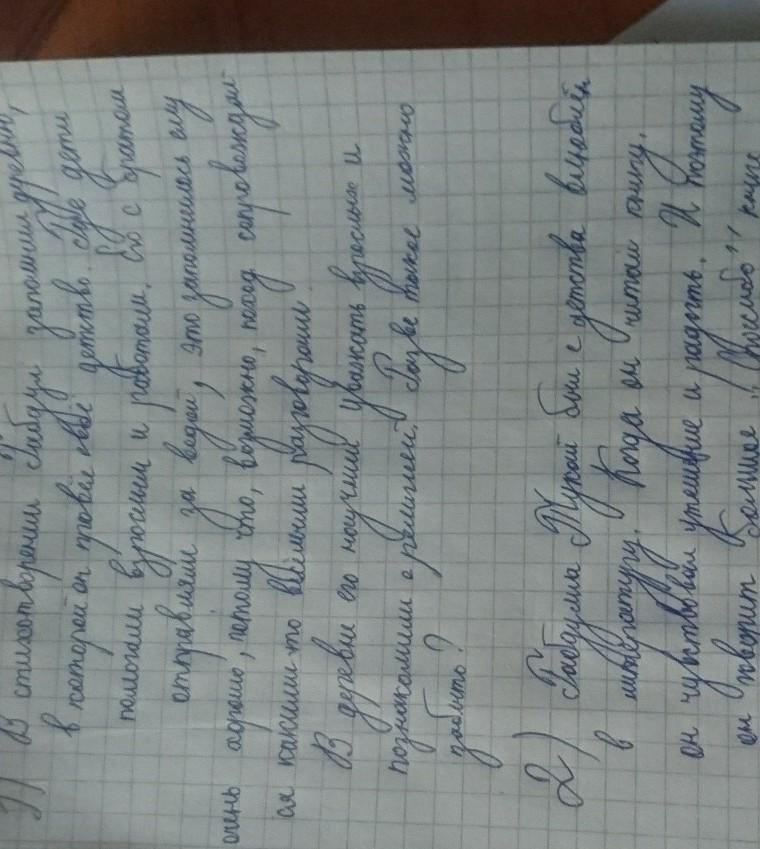 1) В стихотворении Габдулл запомнил деревню,
в которой он провёл своё детство. Где дети
помогали взрослым и работали. Его с братом
отправляли за водой, это запомнилось ему
очень хорошо, потому что, возможно, поход сопровождал
ся какими-то весёлыми разговорами.
В деревне его научили уважать взрослых и
познакомили с религией. Разве такое можно
забыть?
2) Габдулла Тукай был с детства влюблён
в литературу. Когда он читал книгу,
он чувствовал утешение и радость. И поэтому
он творит большое